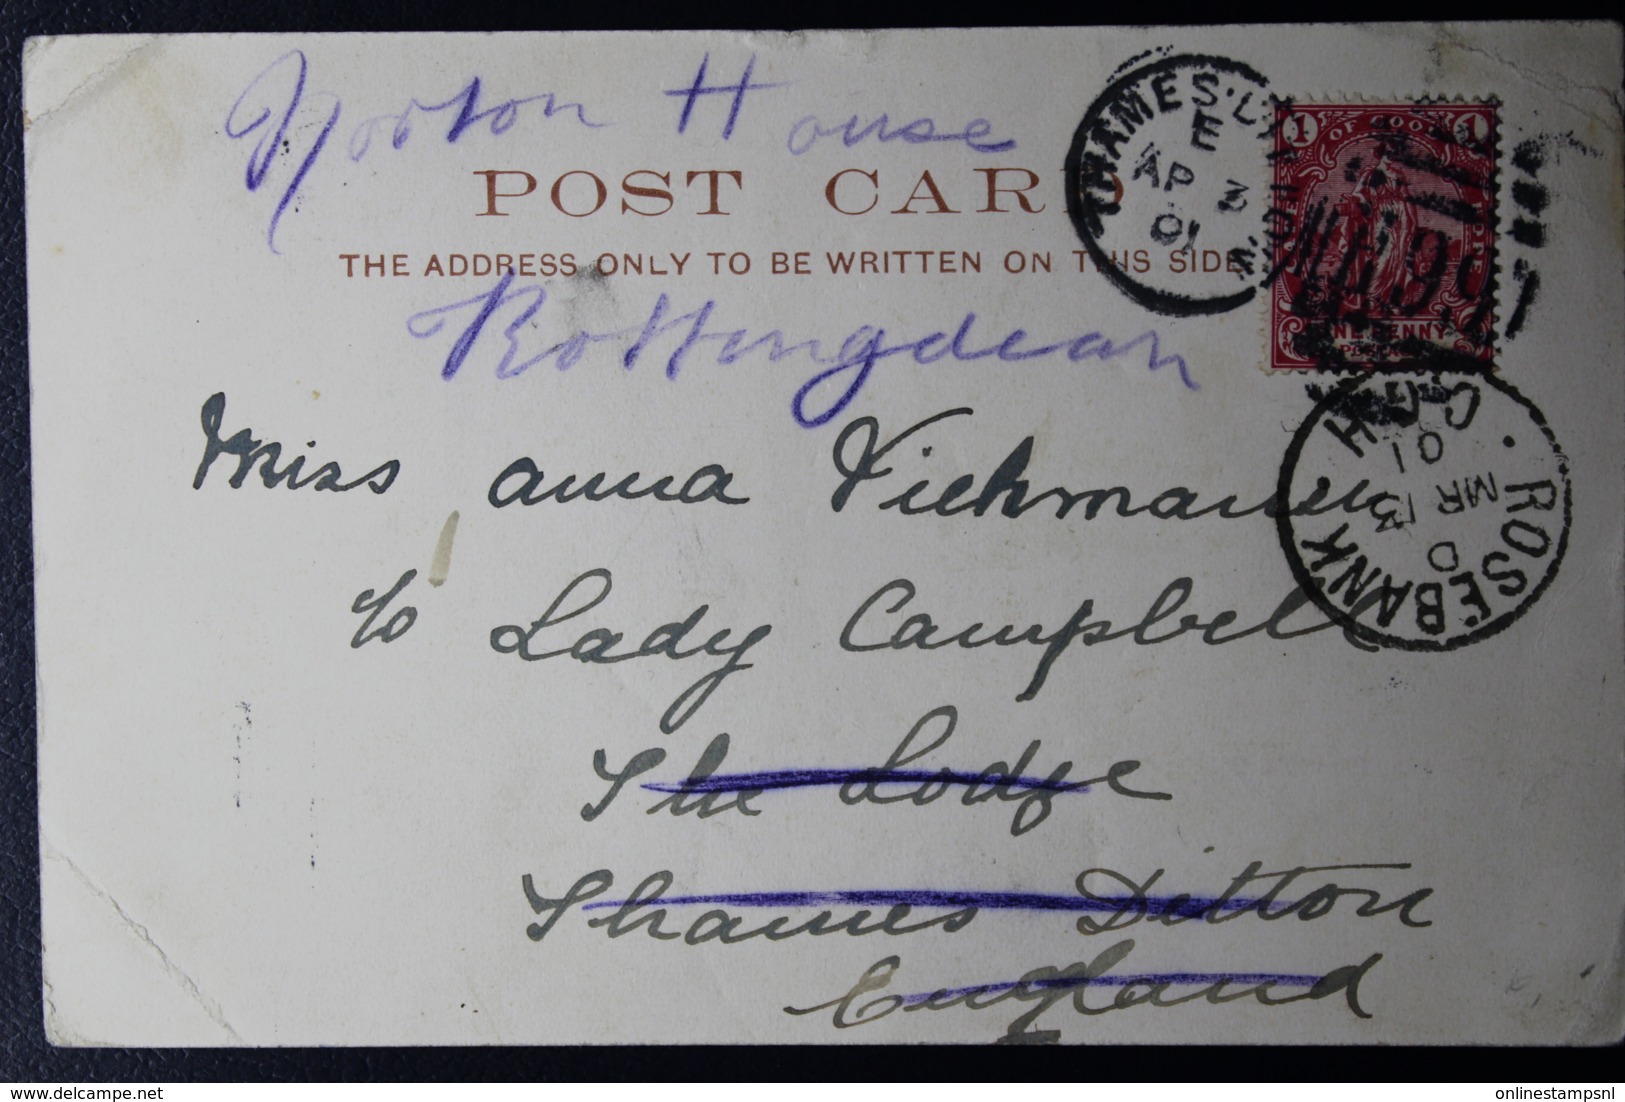 Norton House
POST CARD
THE ADDRESS ONLY TO BE WRITTEN ON THIS SIDE
Rottingdean
Miss Anna Vichmann
c/o Lady Campbell
The Lodge
Thames Ditton
England
THAMES
E
AP 3
01
1 OF GOOD 1
ONE PENNY
ROSEBANK
C.G.H
D
MR 13
01
onlinestampsnl